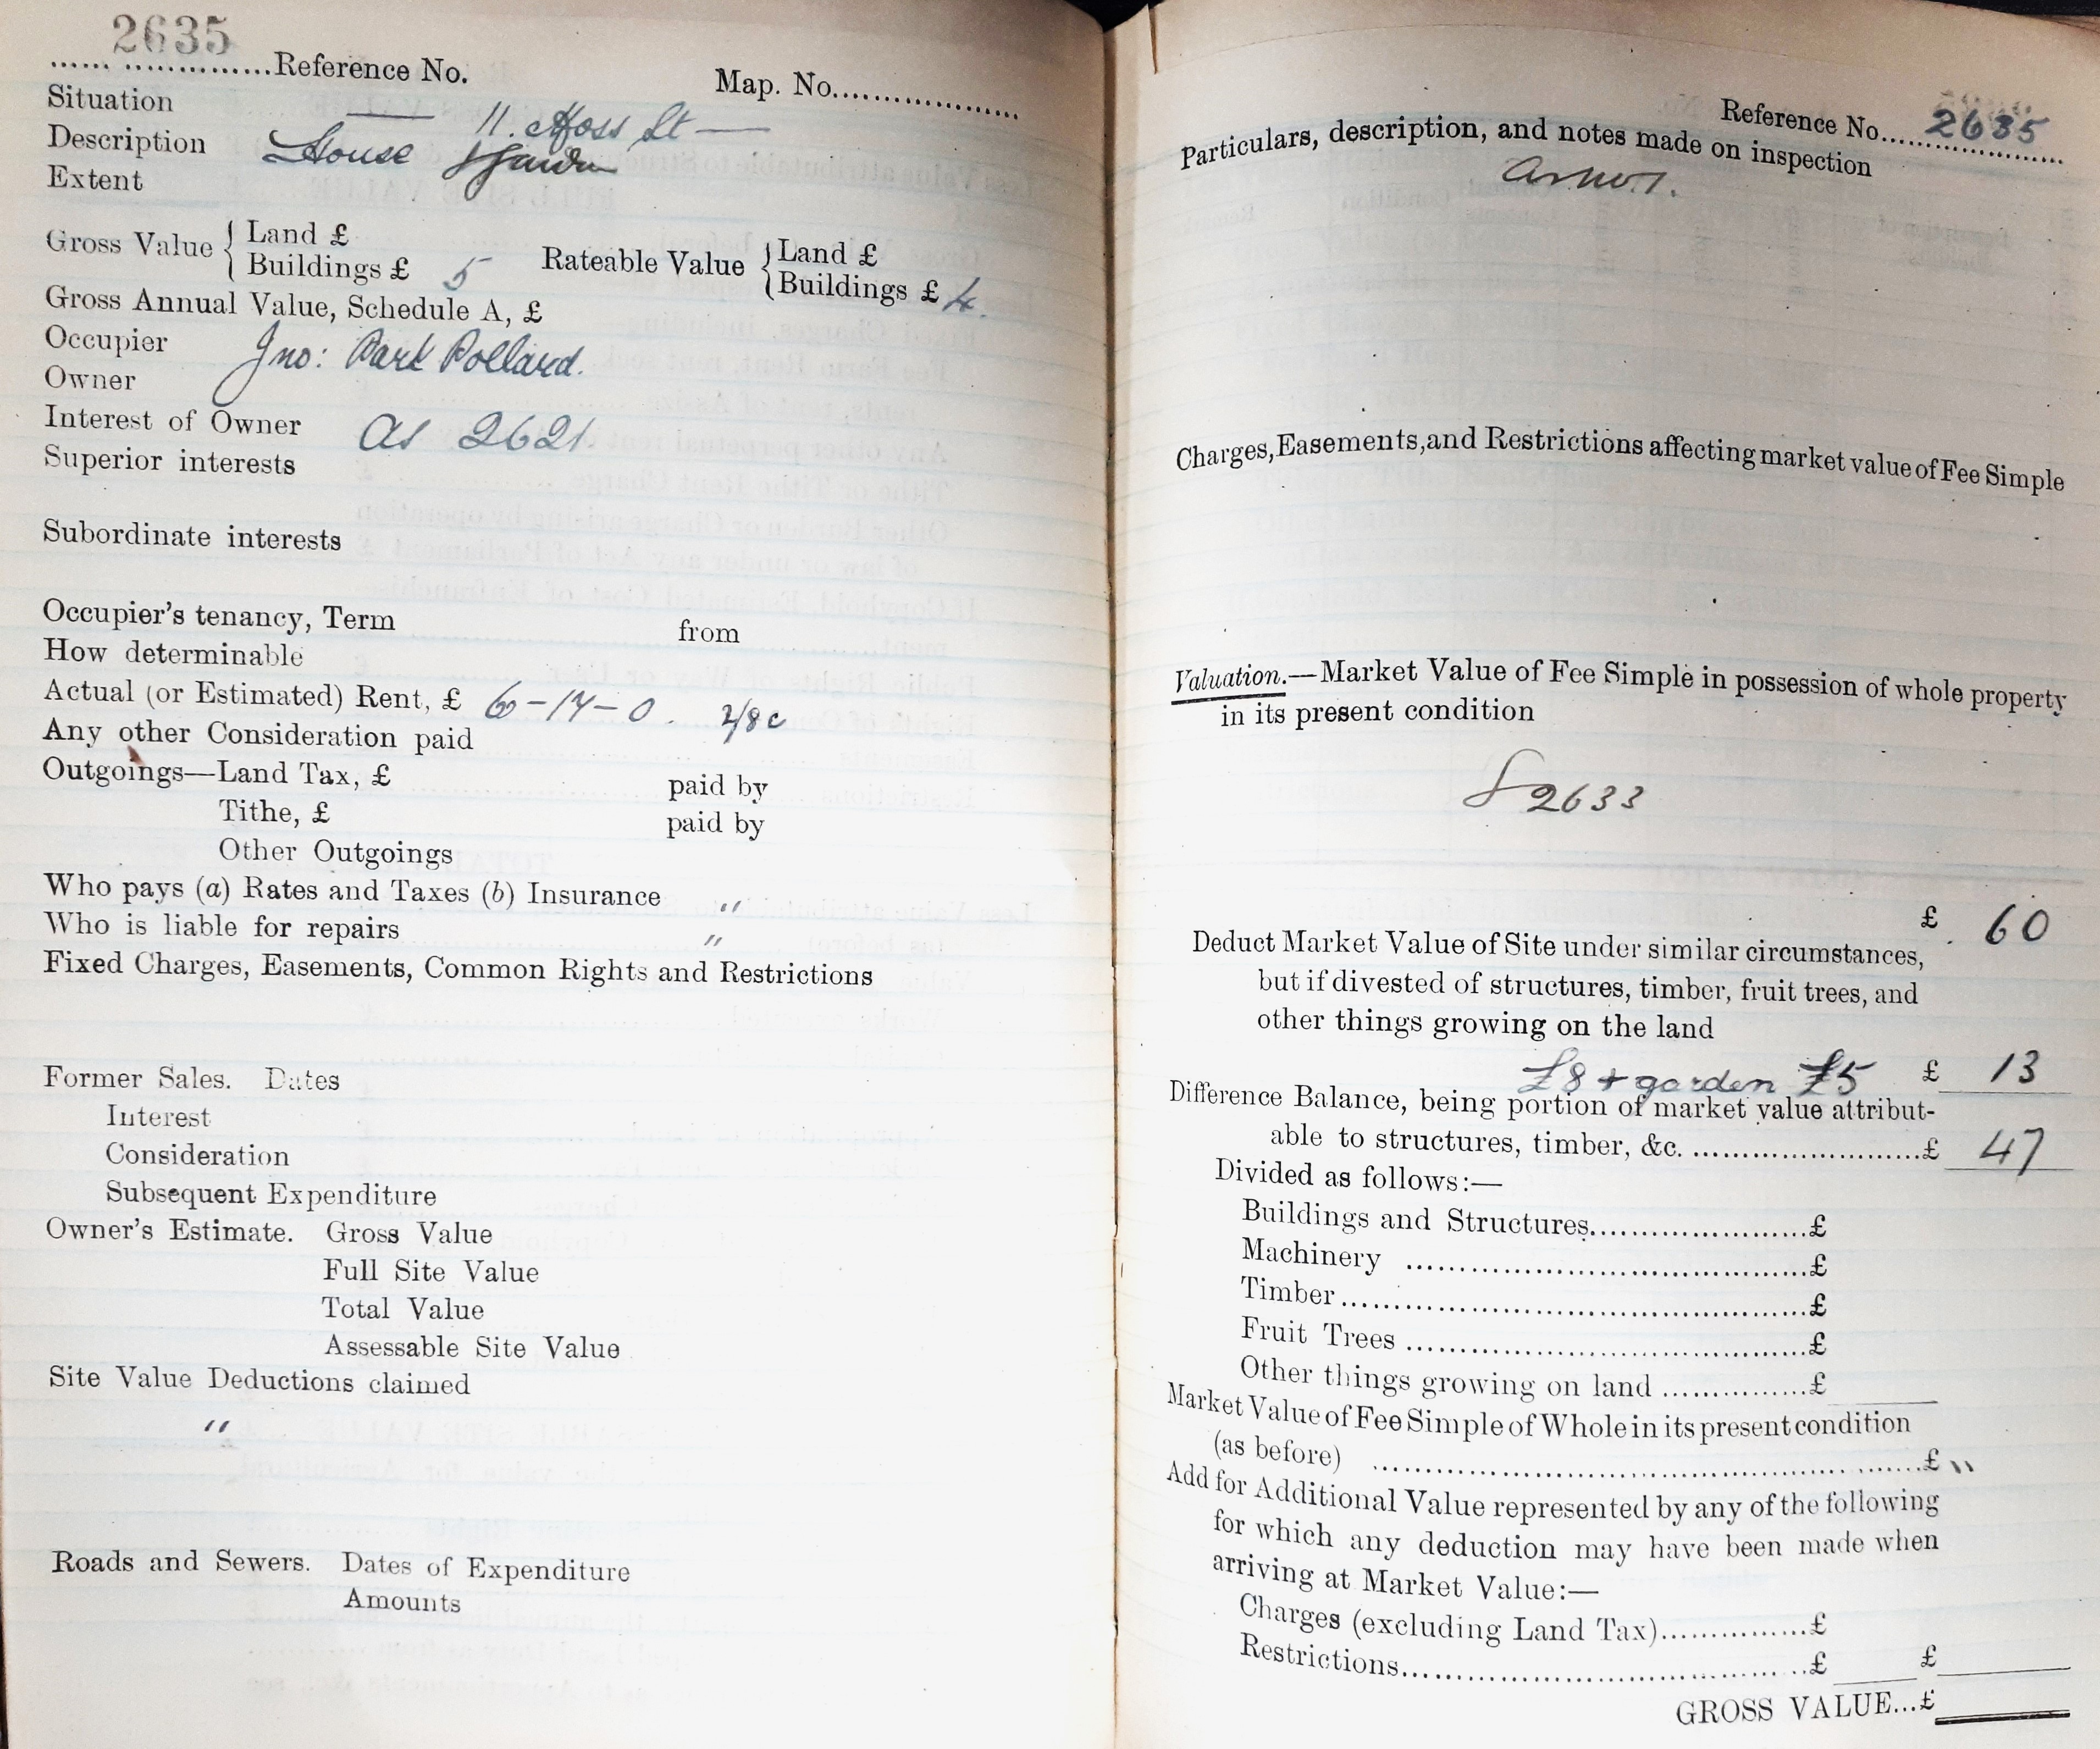 2635
Reference No. Map. No.
Situation 11. Moss St
Description House & Garden
Extent
Gross Value { Land £
Buildings £ 5
Rateable Value { Land £
Buildings £ 4.
Gross Annual Value, Schedule A, £
Occupier Jno: Park Pollard.
Owner
Interest of Owner as 2621
Superior interests
Subordinate interests
Occupier's tenancy, Term from
How determinable
Actual (or Estimated) Rent, £ 6-14-0. 2/8c
Any other Consideration paid
Outgoings—Land Tax, £ paid by
Tithe, £ paid by
Other Outgoings
Who pays (a) Rates and Taxes (b) Insurance "
Who is liable for repairs "
Fixed Charges, Easements, Common Rights and Restrictions
Former Sales. Dates
Interest
Consideration
Subsequent Expenditure
Owner's Estimate. Gross Value
Full Site Value
Total Value
Assessable Site Value
Site Value Deductions claimed
"
Roads and Sewers. Dates of Expenditure
Amounts
Reference No. 2635
Particulars, description, and notes made on inspection
Charges, Easements, and Restrictions affecting market value of Fee Simple
Valuation.—Market Value of Fee Simple in possession of whole property
in its present condition
2633
£ 60
Deduct Market Value of Site under similar circumstances,
but if divested of structures, timber, fruit trees, and
other things growing on the land
£8 + garden £5 £ 13
Difference Balance, being portion of market value attribut-
able to structures, timber, &c. £ 47
Divided as follows:—
Buildings and Structures £
Machinery £
Timber £
Fruit Trees £
Other things growing on land £
Market Value of Fee Simple of Whole in its present condition
(as before) £ "
Add for Additional Value represented by any of the following
for which any deduction may have been made when
arriving at Market Value:—
Charges (excluding Land Tax) £
Restrictions £ £
GROSS VALUE...£